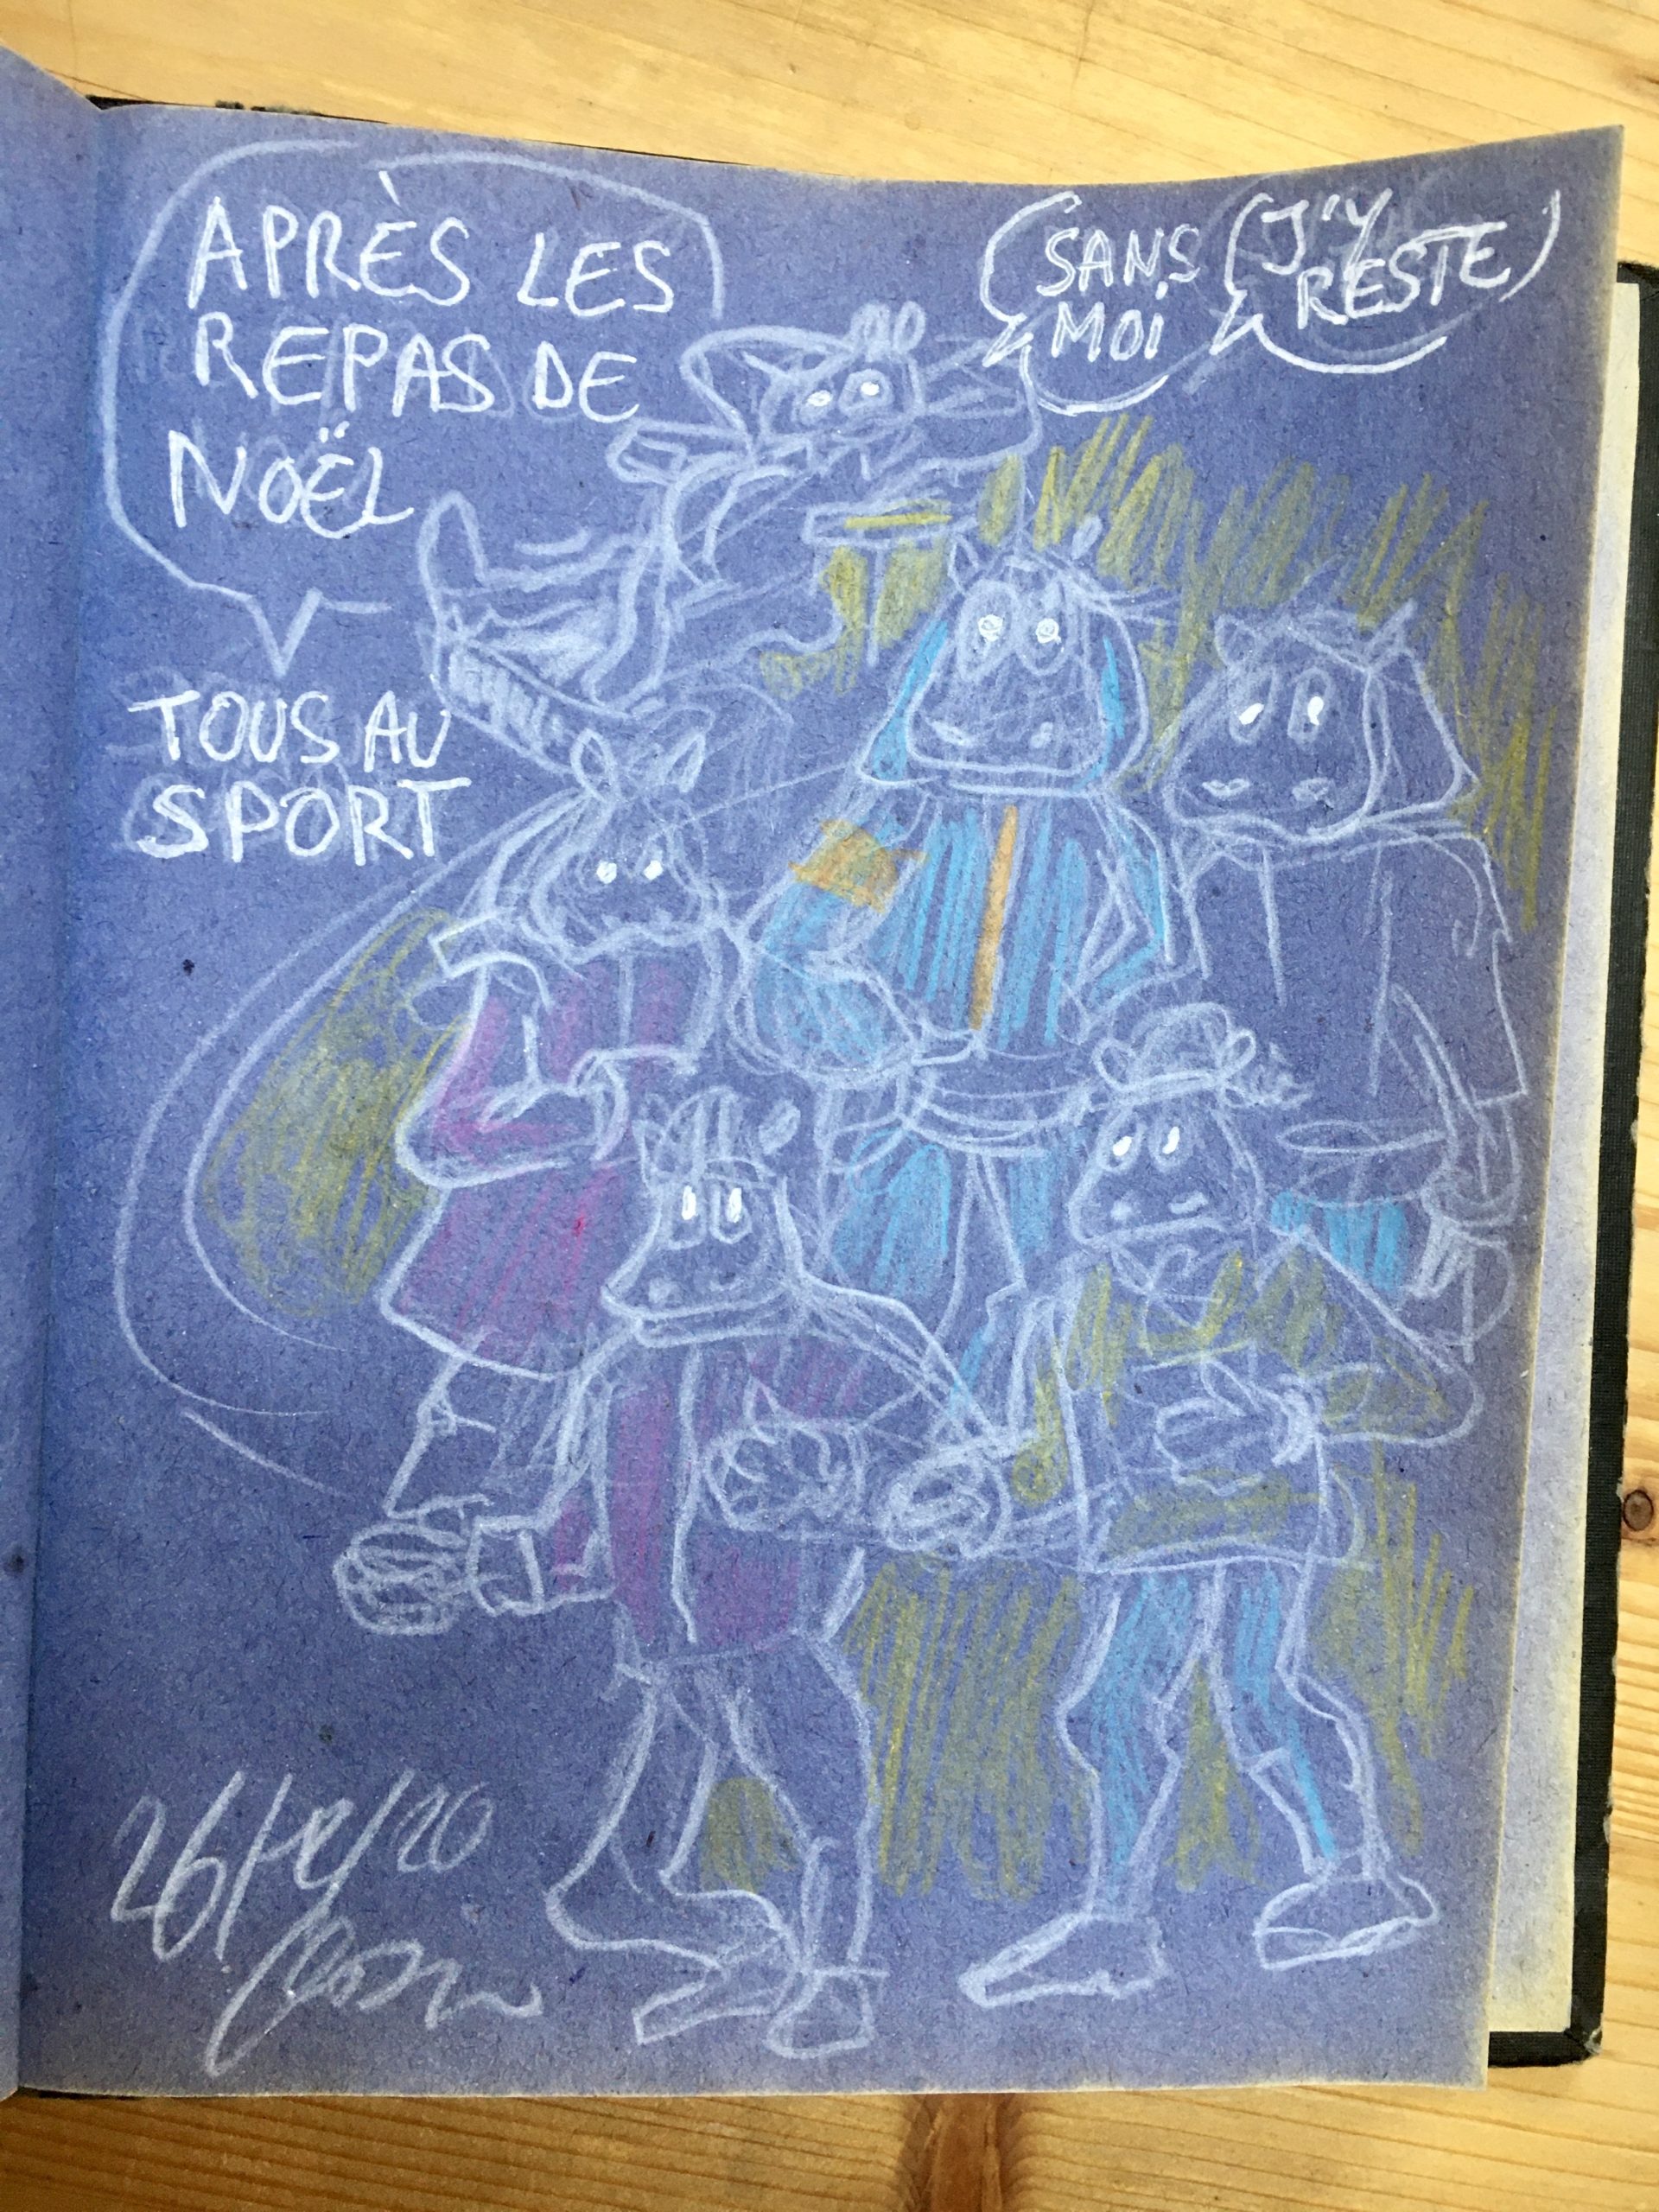 APRÈS LES
REPAS DE
NOËL
TOUS AU
SPORT
SANS
MOI
J'Y
RESTE